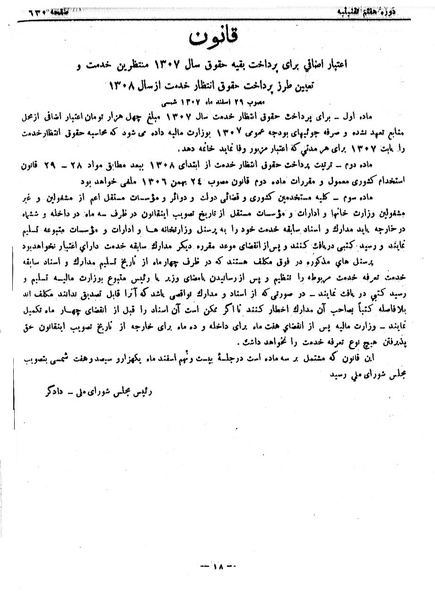 دوره هفتم تقنینیه
صفحه ۶۳۰
قانون
اعتبار اضافی برای پرداخت بقیه حقوق سال ۱۳۰۷ منتظرین خدمت و
تعیین طرز پرداخت حقوق انتظار خدمت از سال ۱۳۰۸
مصوب ۲۹ اسفند ماه ۱۳۰۷ شمسی
ماده اول – برای پرداخت حقوق انتظار خدمت سال ۱۳۰۷ مبلغ چهل هزار تومان اعتبار اضافی از محل
منابع تعهد نشده و صرفه جوئیهای بودجه عمومی ۱۳۰۷ بوزارت مالیه داده می شود که محاسبه حقوق انتظار خدمت
را بابت ۱۳۰۷ برای هر مدتی که اعتبار مزبور وفا نماید خاتمه دهد.
ماده دوم – ترتیب پرداخت حقوق انتظار خدمت از ابتدای ۱۳۰۸ ببعد مطابق مواد ۲۸ – ۲۹ قانون
استخدام کشوری معمول و مقررات ماده دوم قانون مصوب ۲۴ بهمن ۱۳۰۶ ملغی خواهد بود
ماده سوم – کلیه مستخدمین کشوری و قضائی دولت و دوائر و مؤسسات مستقل اعم از مشغولین و غیر
مشغولین وزارت خانها و ادارات و مؤسسات مستقل از تاریخ تصویب اینقانون در ظرف سه ماه در داخله و ششماه
در خارجه باید مدارک و اسناد سابقه خدمت خود را به پرسنل وزارتخانه ها و ادارات و مؤسسات متبوعه تسلیم
نمایند و رسید کتبی دریافت کنند و پس از انقضای موعد مقرره دیگر مدارک سابقه خدمت دارای اعتبار نخواهد بود
پرسنل های مذکوره در فوق مکلف هستند که در ظرف چهار ماه از تاریخ تسلیم مدارک و اسناد سابقه
خدمت تعرفه خدمت مربوطه را تنظیم و پس از رسانیدن بامضای وزیر یا رئیس متبوع بوزارت مالیه تسلیم و
رسید کتبی دریافت نمایند – در صورتی که از اسناد و مدارک نواقصی باشد که آنرا قابل تصدیق ندانند مکلف اند
بلافاصله کتباً بصاحب آن مدارک اخطار کنند تا اگر ممکن است آن اسناد را قبل از انقضای چهار ماه تکمیل
نمایند – وزارت مالیه پس از انقضای هفت ماه برای داخله و ده ماه برای خارجه از تاریخ تصویب اینقانون حق
پذیرفتن هیچ نوع تعرفه خدمت را نخواهد داشت.
این قانون که مشتمل بر سه ماده است در جلسه بیست و نهم اسفند ماه یکهزار و سیصد و هفت شمسی بتصویب
مجلس شورای ملی رسید
رئیس مجلس شورای ملی – دادگر
– ۱۸ –